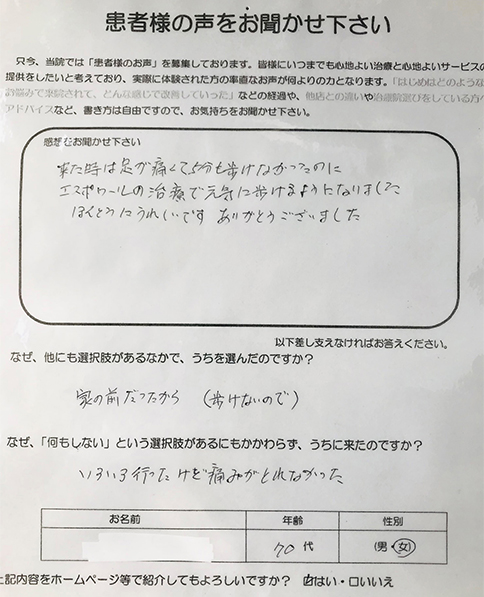 患者様の声をお聞かせ下さい
只今、当院では「患者様のお声」を募集しております。皆様にいつまでも心地よい治療と心地よいサービスの
提供をしたいと考えており、実際に体験された方の率直なお声が何よりの力となります。「はじめはどのような
お悩みで来院されて、どんな感じで改善していった」などの経過や、他店との違いや治療院選びをしている方へ
アドバイスなど、書き方は自由ですので、お気持ちをお聞かせ下さい。
感想をお聞かせ下さい
来た時は足が痛くて5分も歩けなかったのに
エスポワールの治療で元気に歩けるようになりました
ほんとうにうれしいです ありがとうございました
以下差し支えなければお答えください。
なぜ、他にも選択肢があるなかで、うちを選んだのですか?
家の前だったから (歩けないので)
なぜ、「何もしない」という選択肢があるにもかかわらず、うちに来たのですか?
いろいろ行ったけど痛みがとれなかった
お名前 年齢 性別
70代 (男・女)
上記内容をホームページ等で紹介してもよろしいですか? ☑はい・□いいえ